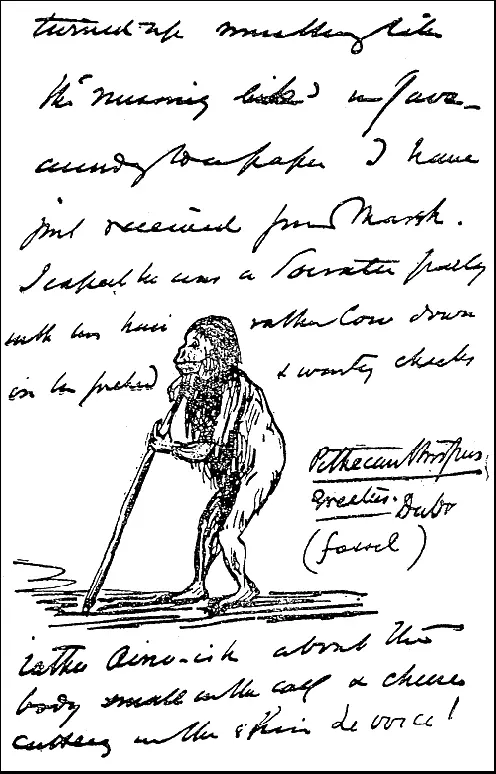 turned up something like
the "missing link" in Java
according to a paper I have
just received from Marsh.
I expect he was a Socratic party
with his hair rather low down
on his forehead & warty cheeks
Pithecanthropus
erectus. Dubo
(fossil)
rather Aino-ish about the
body small in the calf & cheese
cutting in the shins Le voici!